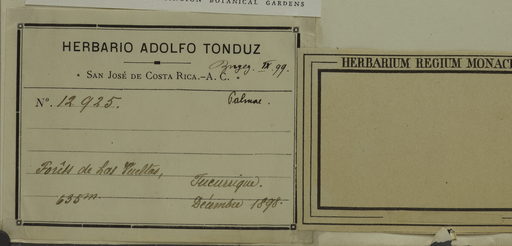 BOTANICAL GARDENS
HERBARIO ADOLFO TONDUZ
IX. 99.
* SAN JOSÉ DE COSTA RICA.-A. C. *
Nº. 12925. Palmae.
Forêts de Las Vueltas,
Tucurrique.
635 m Décembre 1898
HERBARIUM REGIUM MONAC